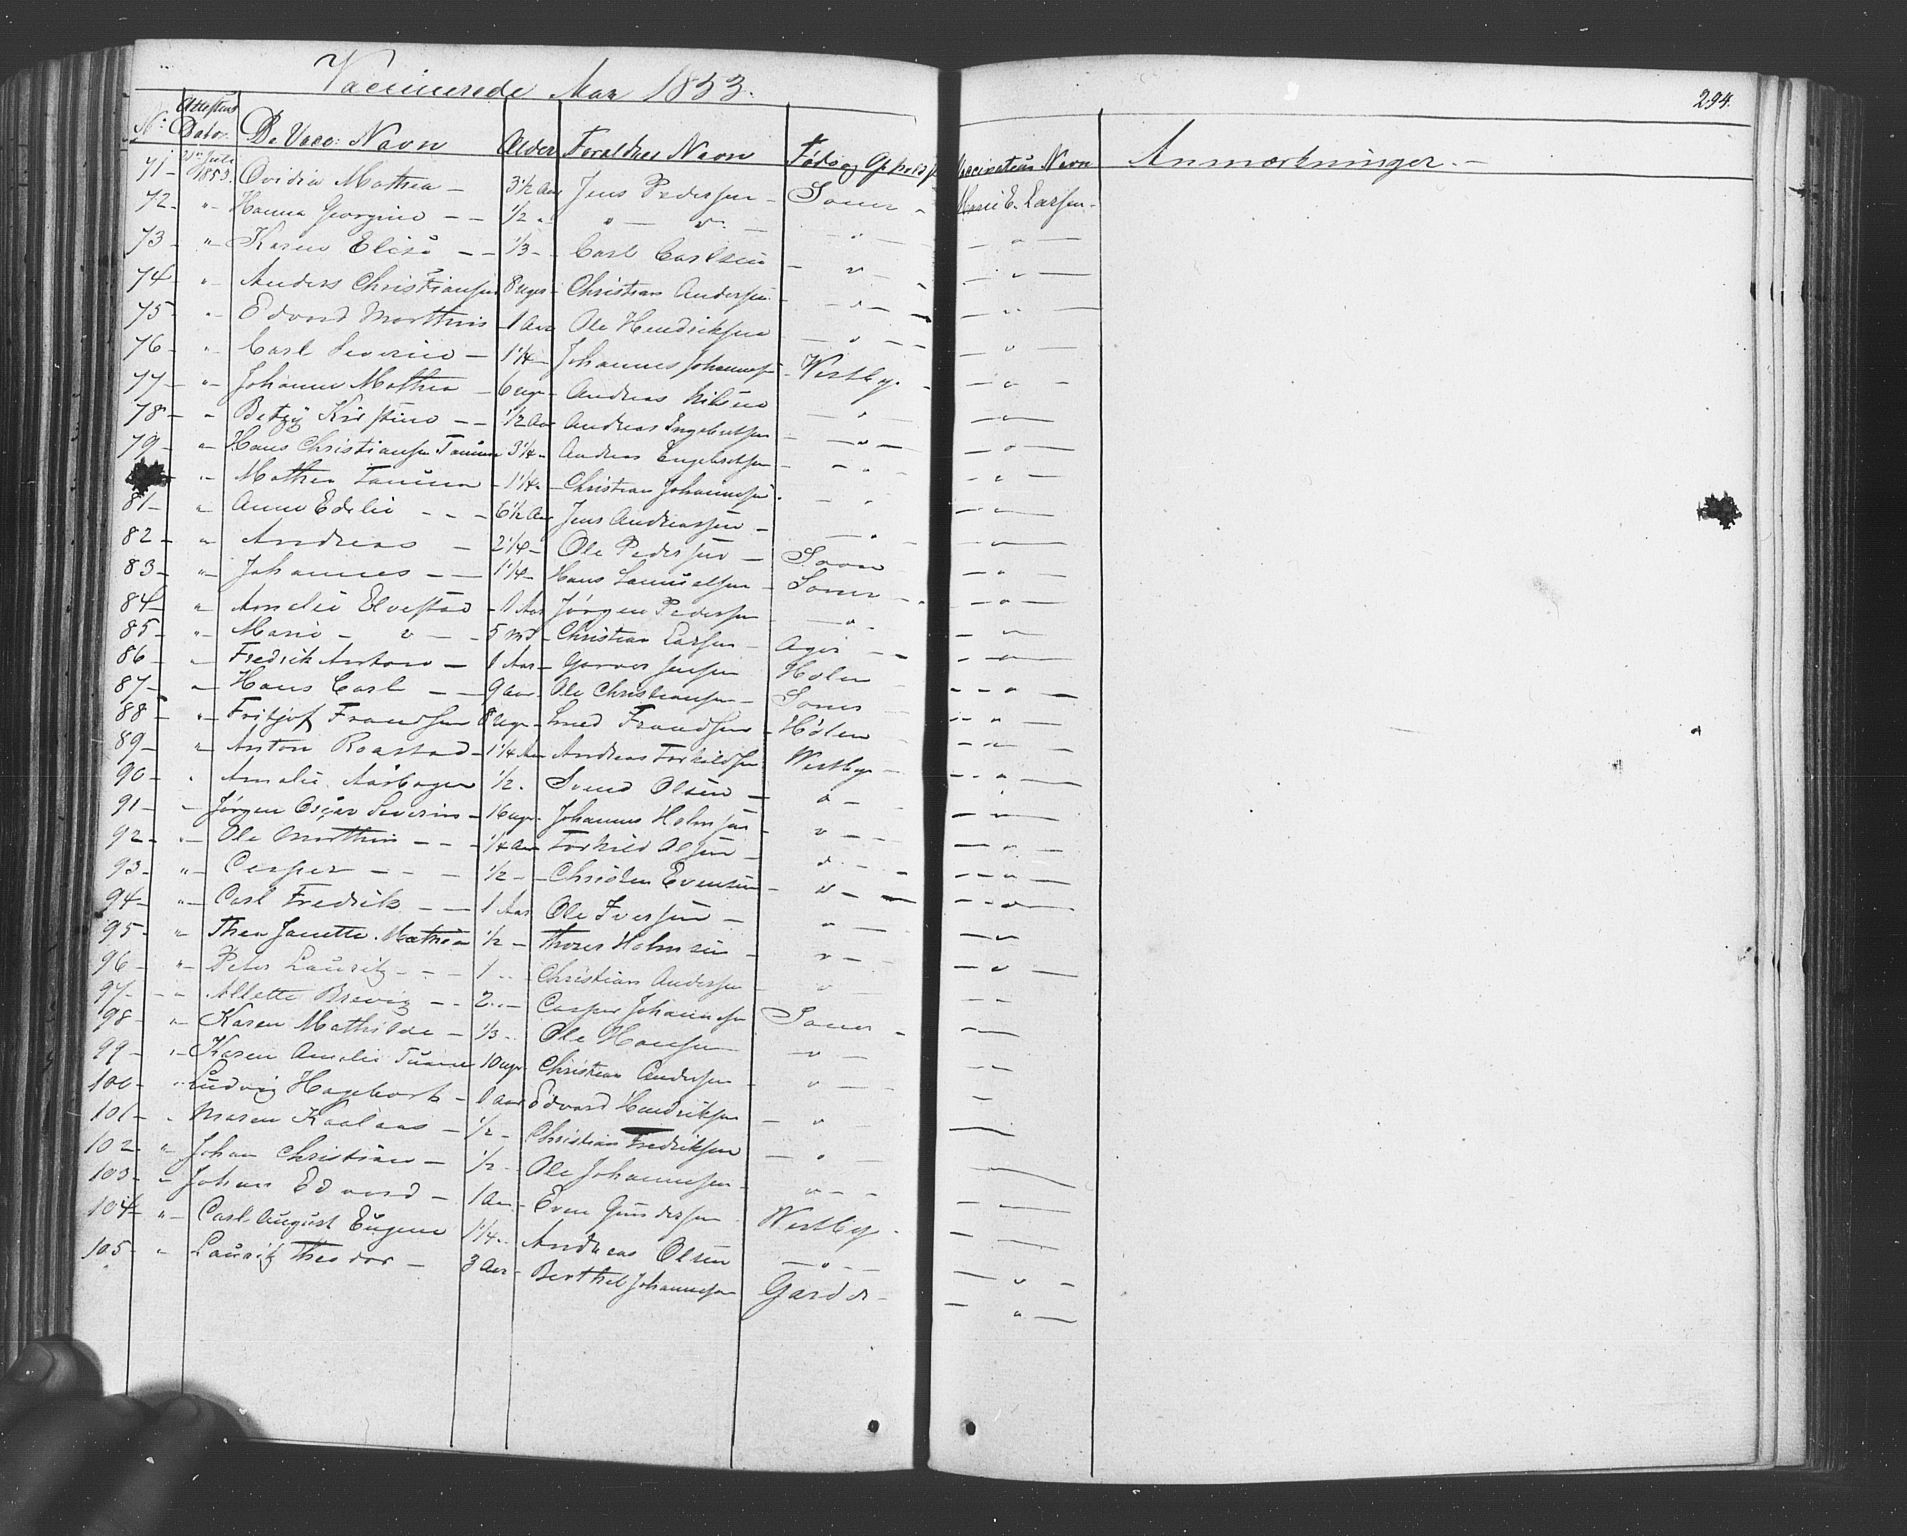 Vaccinerede Aar 1853.
294.
No: Attestens Dato. De Vacc: Navn Alder Forældres Navn Føde og Vaccinateurs Navn Anmærkninger. —
71 — Juli 1853. Ovidia Mathea — 3½ Aar Jens Pedersen — Soner - Marie E. Larsen.
72 - " Hanna Georgine — — ½ " " — " — " —
73 - " Karen Elise — — 1/3 - Carl Carlsen — " —
74 - " Anders Christiansen 8 Uger - Christian Andersen — " —
75 - " Edvard Marthin 1 Aar Ole Hendriksen — " —
76 - " Carl Severin — 1¼ — Johannes Johannesen - Vestby —
77 - " Johanne Mathea — 6 Uger - Andreas Nilsen — " —
78 - " Betzy Kirstine — — ½ Aar Andreas Engebretsen — " —
79 - " Hans Christiansen 3¼ - Andreas Engebretsen — " —
" Mathea — 1¼ - Christian Johannesen — " —
81 - " Anne Edelie — — — 6½ Aar Jens Andreassen — — " —
82 - " Andreas — 2¼ - Ole Pedersen — — " —
83 - " Johannes — — 1¼ - Hans Samuelsen - Soner — " —
84 - " Amelie Elvestad - 1 Aar Jørgen Pedersen — " —
85 - " Marie — " — 5 Md - Christian Larsen — " —
86 - " Fredrik Anton — 1 Aar - Jensen Holen — " —
87 - " Hans Carl — — 9 Aar Ole Christiansen — Soner — " —
88 - " Fritjof Frandsen 8 Uger Frandsen - Hølen — " —
89 - " Anton Raastad - 1¼ Aar Andreas Torkildsen Vestby — " —
90 - " Amelie Aasbager ½ - Svend Olsen — " —
91 - " Jørgen Oscar Severin - 16 Uger - Johannes Holmsen — " —
92 - " Ole Marthin — — - ¼ Aar Torkild Olsen — " —
93 - " Casper — — — ½ — Christen Evensen — " —
94 - " Carl Fredrik — — 1 Aar Ole Iversen — " —
95 - " Thea Janette Mathea ½ — Thorer Holmsen — " —
96 - " Peter Lauritz — — 1 " - Christian Andersen — " —
97 - " Allette Brevig — — 2 " - Casper Johannesen Soner —
98 - " Karen Mathilde — 1/3 - Ole Hansen — " —
99 - " Karen Amelie 10 Uger Christian Andersen — " —
100 - " Ludvig Hagebork - 1 Aar Edvard Hendriksen — " —
101 - " Maren Kaalaas — ½ - Christian Fredriksen — " —
102 - " Johan Christian — ½ - Ole Johannesen — " —
103 - " Johan Edvard — 1 Aar - Even Gundersen Vestby —
104 - " Carl August Eugene 1¼ - Andreas Olsen — " —
105 - " Lauritz Theodor — 3 Aar - Berthel Johannesen Garder — " —